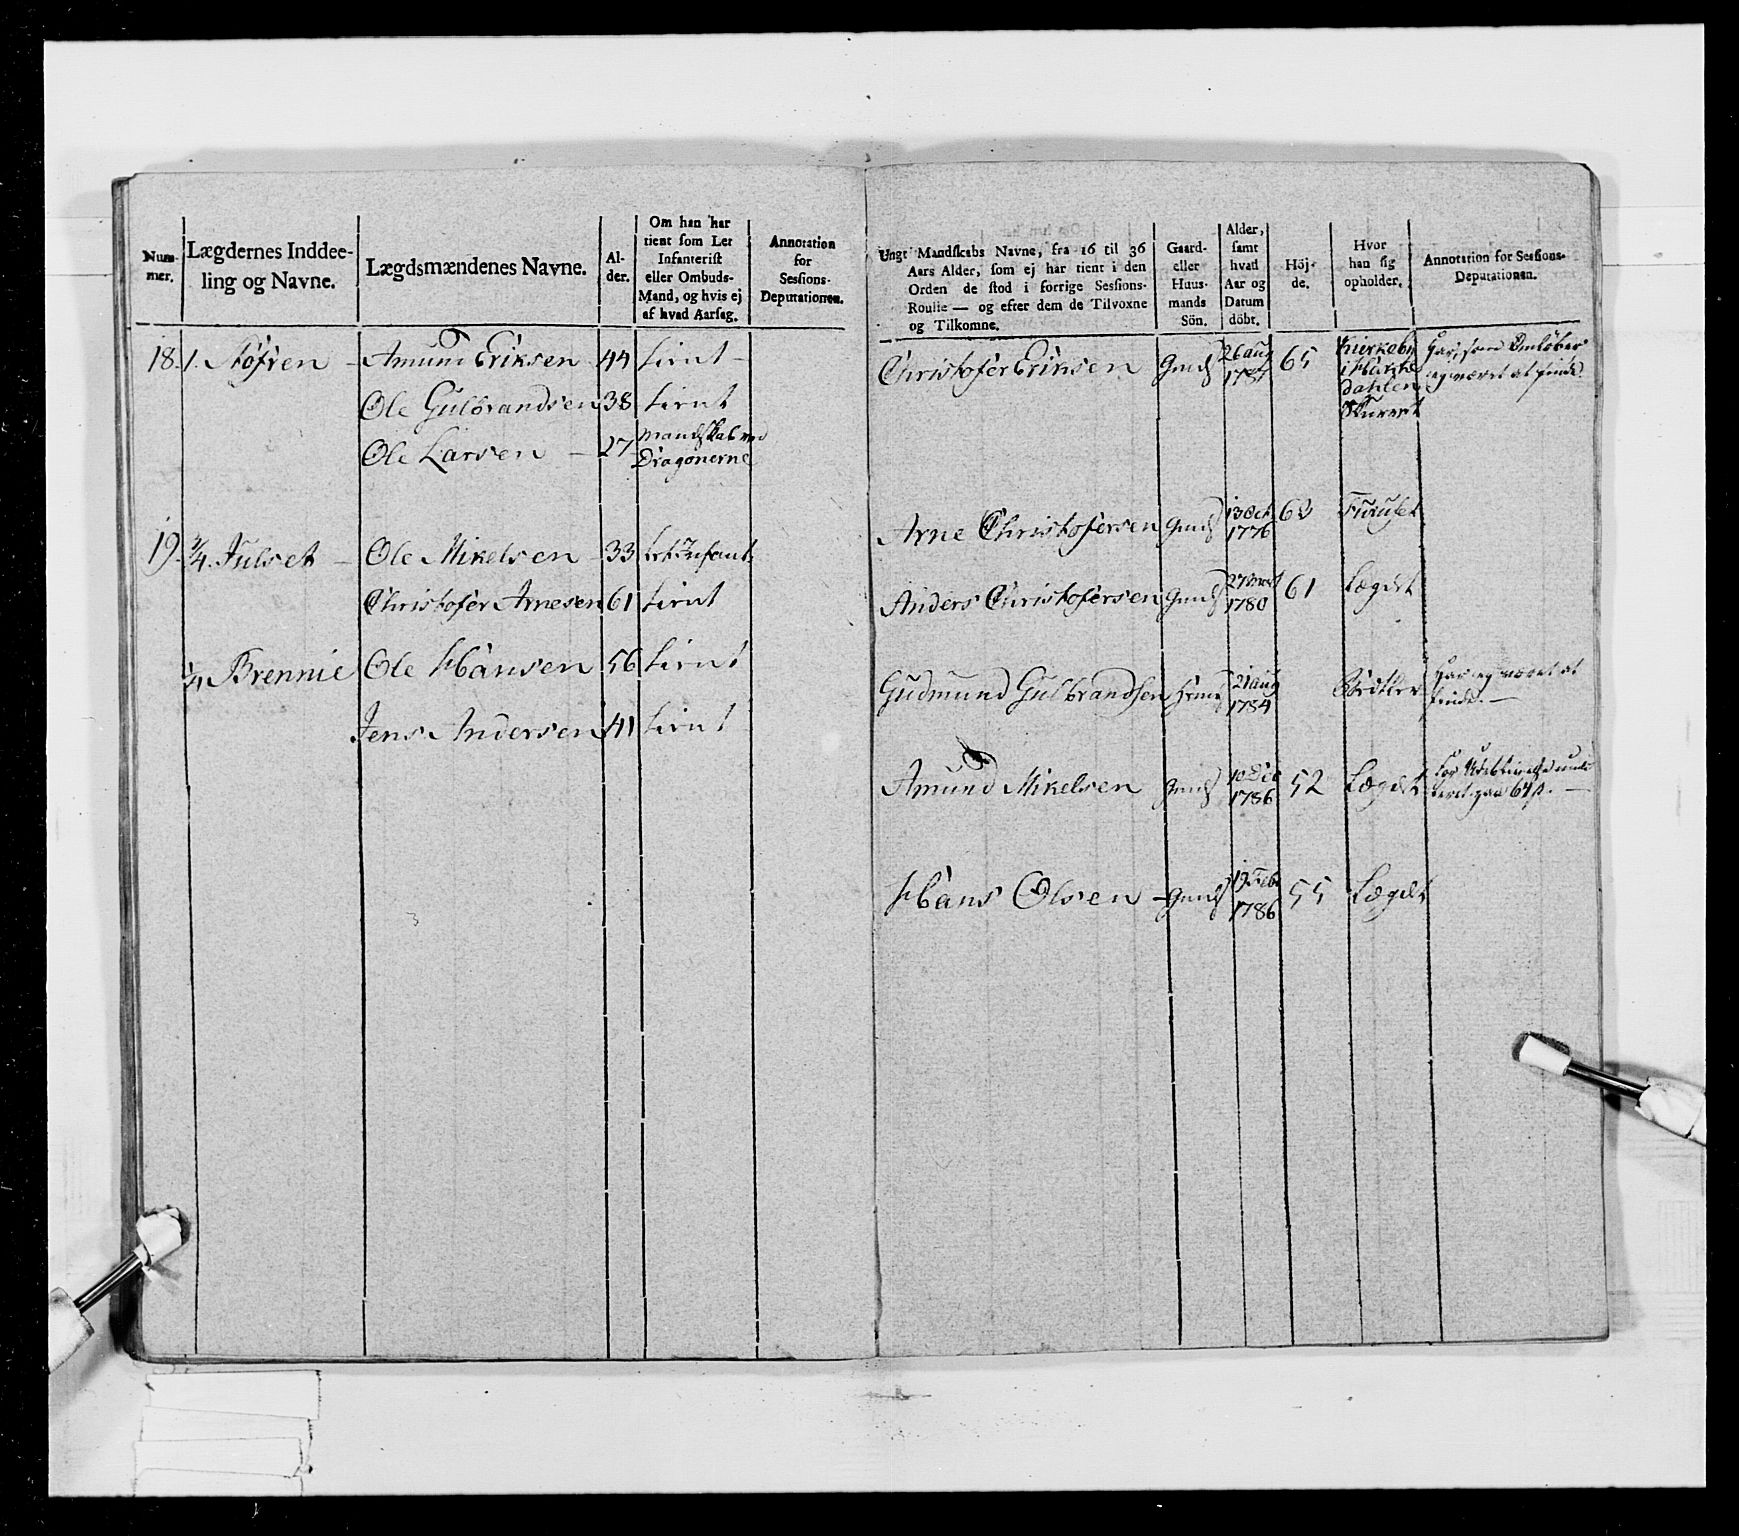 Num-
mer.
Lægdernes Inddee-
ling og Navne.
Lægdsmændenes Navne.
Al-
der.
Om han har
tient som Let
Infanterist
eller Ombuds-
Mand, og hvis ej
af hvad Aarsag.
Annotation
for
Sessions-
Deputationen.
18. 1. Støfren - Amund Eriksen - 44 tient -
Ole Gulbrandsen 38 tient
Ole Larsen - 27 Mandskab ved
Dragonerne
19. 3/4. Julset - Ole Mikelsen - 33 Let Infant:
Christofer Arnesen 61 tient
1/4 Brennie Ole Hansen 56 tient
Jens Andersen 41 tient
Ungt Mandskabs Navne, fra 16 til 36
Aars Alder, som ej har tient i den
Orden de stod i forrige Sessions-
Roulle — og efter dem de Tilvoxne
og Tilkomne.
Gaard-
eller
Huus-
mands
Sön.
Alder,
samt
hvad
Aar og
Datum
döbt.
Höj-
de.
Hvor
han sig
opholder.
Annotation for Sessions-
Deputationen.
Christofer Eriksen Gmds 26 aug
1787 65
Arne Christofersen Gmds 13 Oct
1776 Furuset
Anders Christofersen Gmds
1780 61 Lægdet
Gudmund Gulbrandsen 21 aug
1784 Har ej været at
finde. —
Amund Mikelsen Gmds 10 Dec
1786 52 Lægdet
Hans Olsen - Gmds 19 Feb:
1786 55 Lægdet